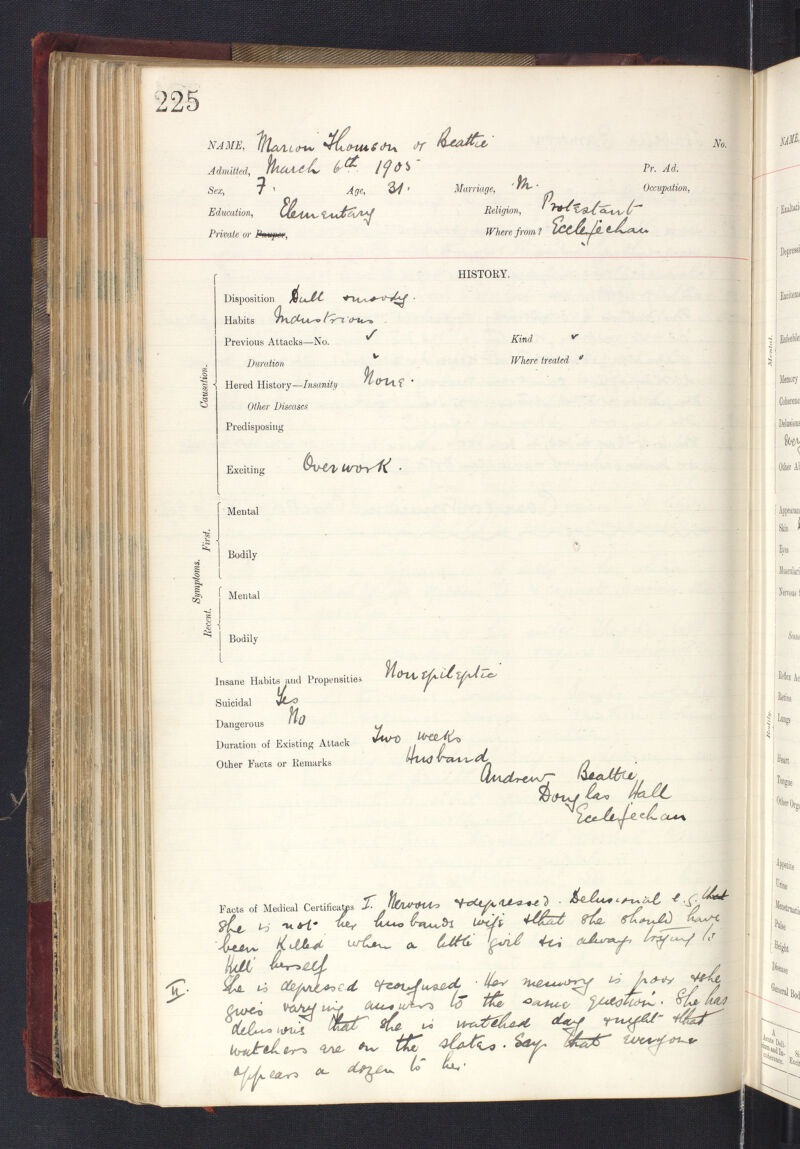 225
NAME, Marion Thomson or Beattie No.
Admitted, March 6th 1905 Pr. Ad.
Sex, F. Age, 31. Marriage, M. Occupation,
Education, Elementary Religion, Protestant
Private or Pauper, Where from? Ecclefechan
HISTORY.
Disposition Dull & moody.
Habits Industrious.
Previous Attacks—No. Kind
Duration Where treated
Causation.
Hered History—Insanity None.
Other Diseases
Predisposing
Exciting Overwork.
Symptoms.
First.
Mental
Bodily
Recent.
Mental
Bodily
Insane Habits and Propensities Non epileptic
Suicidal Yes
Dangerous No
Duration of Existing Attack Two weeks
Other Facts or Remarks Husband
Andrew Beattie
Douglas Hall
Ecclefechan
Facts of Medical Certificates I. Nervous & depressed. Delusional e.g. that
she is not her husbands wife & that she should have
been killed when a little girl & is always trying to
kill herself
II. She is depressed & confused. Her memory is poor & she
gives varying answers to the same question. She has
delusions that she is watched day & night & that
watchers are on the slates. Says that everyone
appears a dozen to her.
NAME,
Mental.
Memory
Other
Skin
Eyes
Nervous
Bodily.
Retina
Lungs
Heart
Tongue
Appetite
Urine
Pulse
Height
Disease
A